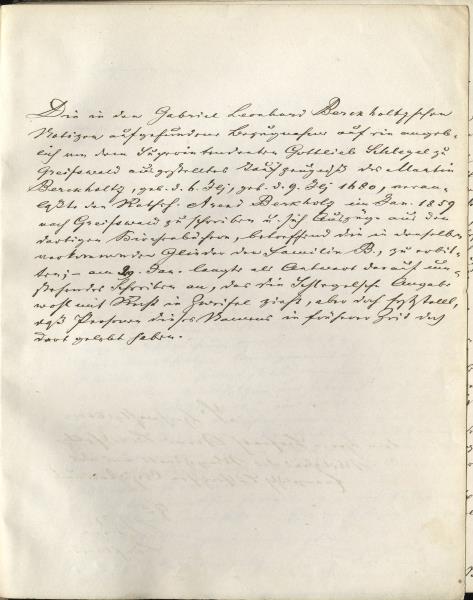 Die in den Gabriel Leonhard Berckholtzschen
Notizen aufgefundene Bezugnahme auf ein angeb-
lich von dem Superintendenten Gottlieb Schlegel zu
Greifswald ausgestelltes Taufzeugniß des Martin
Berckholtz, geb. d. 6. Febr., get. d. 9. Febr. 1680, veran-
laßte den Rathsh. Arend Berkholz im Jan. 1859
nach Greifswald zu schreiben u. sich Auszüge aus den
dortigen Kirchenbüchern, betreffend die in denselben
vorkommenden Glieder der Familie B., zu erbit-
ten; – am 29. Jan. langte als Antwort darauf um-
stehendes Schreiben an, das die Schlegelsche Angabe
wohl mit Recht in Zweifel zieht, aber doch feststellt,
daß Personen dieses Namens in früherer Zeit doch
dort gelebt haben.